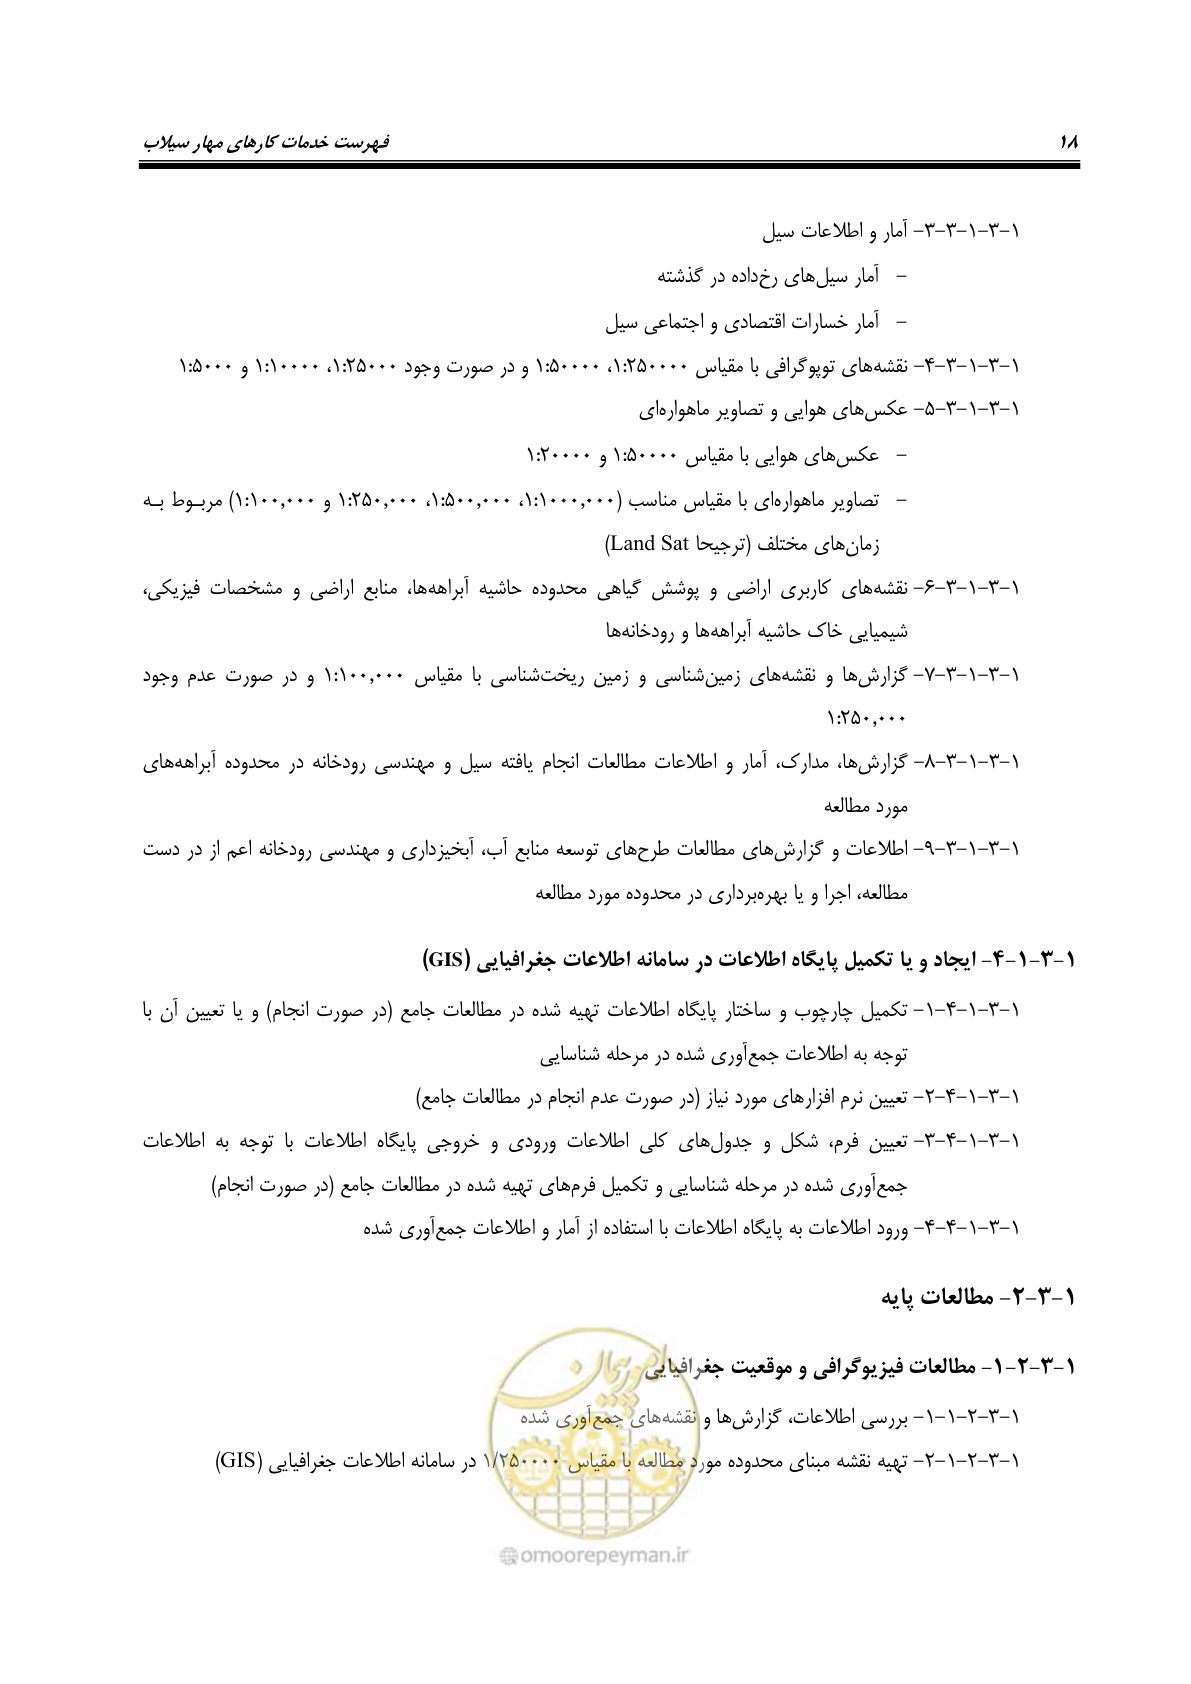 ۱۸ فهرست خدمات کارهای مهار سیلاب
۱-۳-۱-۳-۳- آمار و اطلاعات سیل
– آمار سیل‌های رخ‌داده در گذشته
– آمار خسارات اقتصادی و اجتماعی سیل
۱-۳-۱-۳-۴- نقشه‌های توپوگرافی با مقیاس ۱:۲۵۰۰۰۰، ۱:۵۰۰۰۰ و در صورت وجود ۱:۲۵۰۰۰، ۱:۱۰۰۰۰ و ۱:۵۰۰۰
۱-۳-۱-۳-۵- عکس‌های هوایی و تصاویر ماهواره‌ای
– عکس‌های هوایی با مقیاس ۱:۵۰۰۰۰ و ۱:۲۰۰۰۰
– تصاویر ماهواره‌ای با مقیاس مناسب (۱:۱۰۰۰,۰۰۰، ۱:۵۰۰,۰۰۰، ۱:۲۵۰,۰۰۰ و ۱:۱۰۰,۰۰۰) مربـوط بـه
زمان‌های مختلف (ترجیحا Land Sat)
۱-۳-۱-۳-۶- نقشه‌های کاربری اراضی و پوشش گیاهی محدوده حاشیه آبراهه‌ها، منابع اراضی و مشخصات فیزیکی،
شیمیایی خاک حاشیه آبراهه‌ها و رودخانه‌ها
۱-۳-۱-۳-۷- گزارش‌ها و نقشه‌های زمین‌شناسی و زمین ریخت‌شناسی با مقیاس ۱:۱۰۰,۰۰۰ و در صورت عدم وجود
۱:۲۵۰,۰۰۰
۱-۳-۱-۳-۸- گزارش‌ها، مدارک، آمار و اطلاعات مطالعات انجام یافته سیل و مهندسی رودخانه در محدوده آبراهه‌های
مورد مطالعه
۱-۳-۱-۳-۹- اطلاعات و گزارش‌های مطالعات طرح‌های توسعه منابع آب، آبخیزداری و مهندسی رودخانه اعم از در دست
مطالعه، اجرا و یا بهره‌برداری در محدوده مورد مطالعه
۱-۳-۱-۴- ایجاد و یا تکمیل پایگاه اطلاعات در سامانه اطلاعات جغرافیایی (GIS)
۱-۳-۱-۴-۱- تکمیل چارچوب و ساختار پایگاه اطلاعات تهیه شده در مطالعات جامع (در صورت انجام) و یا تعیین آن با
توجه به اطلاعات جمع‌آوری شده در مرحله شناسایی
۱-۳-۱-۴-۲- تعیین نرم افزارهای مورد نیاز (در صورت عدم انجام در مطالعات جامع)
۱-۳-۱-۴-۳- تعیین فرم، شکل و جدول‌های کلی اطلاعات ورودی و خروجی پایگاه اطلاعات با توجه به اطلاعات
جمع‌آوری شده در مرحله شناسایی و تکمیل فرم‌های تهیه شده در مطالعات جامع (در صورت انجام)
۱-۳-۱-۴-۴- ورود اطلاعات به پایگاه اطلاعات با استفاده از آمار و اطلاعات جمع‌آوری شده
۱-۳-۲- مطالعات پایه
۱-۳-۲-۱- مطالعات فیزیوگرافی و موقعیت جغرافیایی
۱-۳-۲-۱-۱- بررسی اطلاعات، گزارش‌ها و نقشه‌های جمع‌آوری شده
۱-۳-۲-۱-۲- تهیه نقشه مبنای محدوده مورد مطالعه با مقیاس ۱/۲۵۰۰۰۰ در سامانه اطلاعات جغرافیایی (GIS)
امور پیمان
omoorepeyman.ir